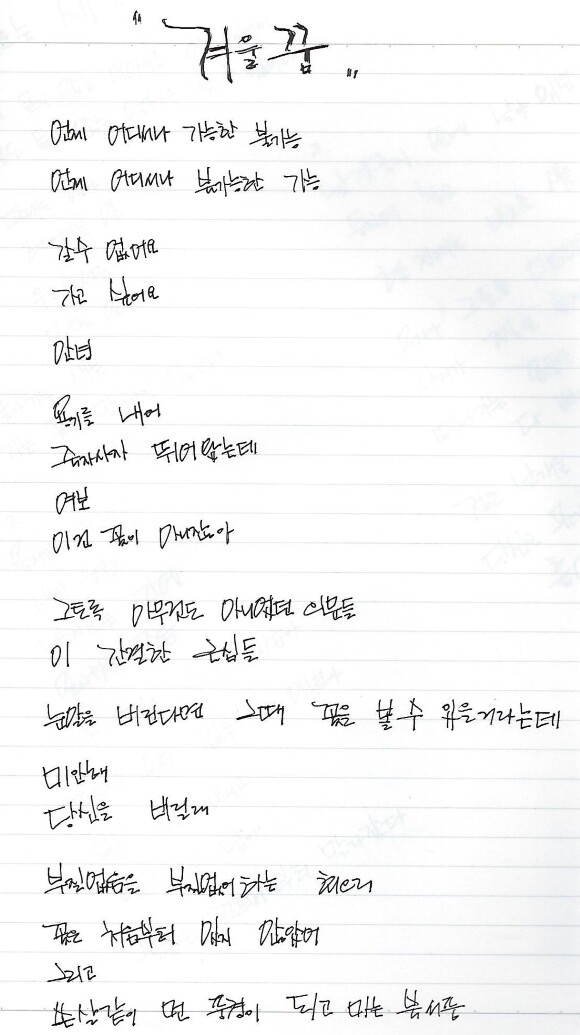 "겨울 꿈"
언제 어디서나 가능한 불가능
언제 어디서나 불가능한 가능
갈수 없어요
가고 싶어요
안녕
용기를 내어
뛰어왔는데
여보
이건 꿈이 아니잖아
그토록 아무것도 아니었던 의문들
이 간절한 근심들
눈말을 버린다면 그때 꿈을 볼 수 있을거라는데
미안해
당신을 버릴래
부질없음을 부질없어하는 회오리
꿈은 처음부터 있지 않았어
그리고
쏜살같이 먼 풍경이 되고 마는